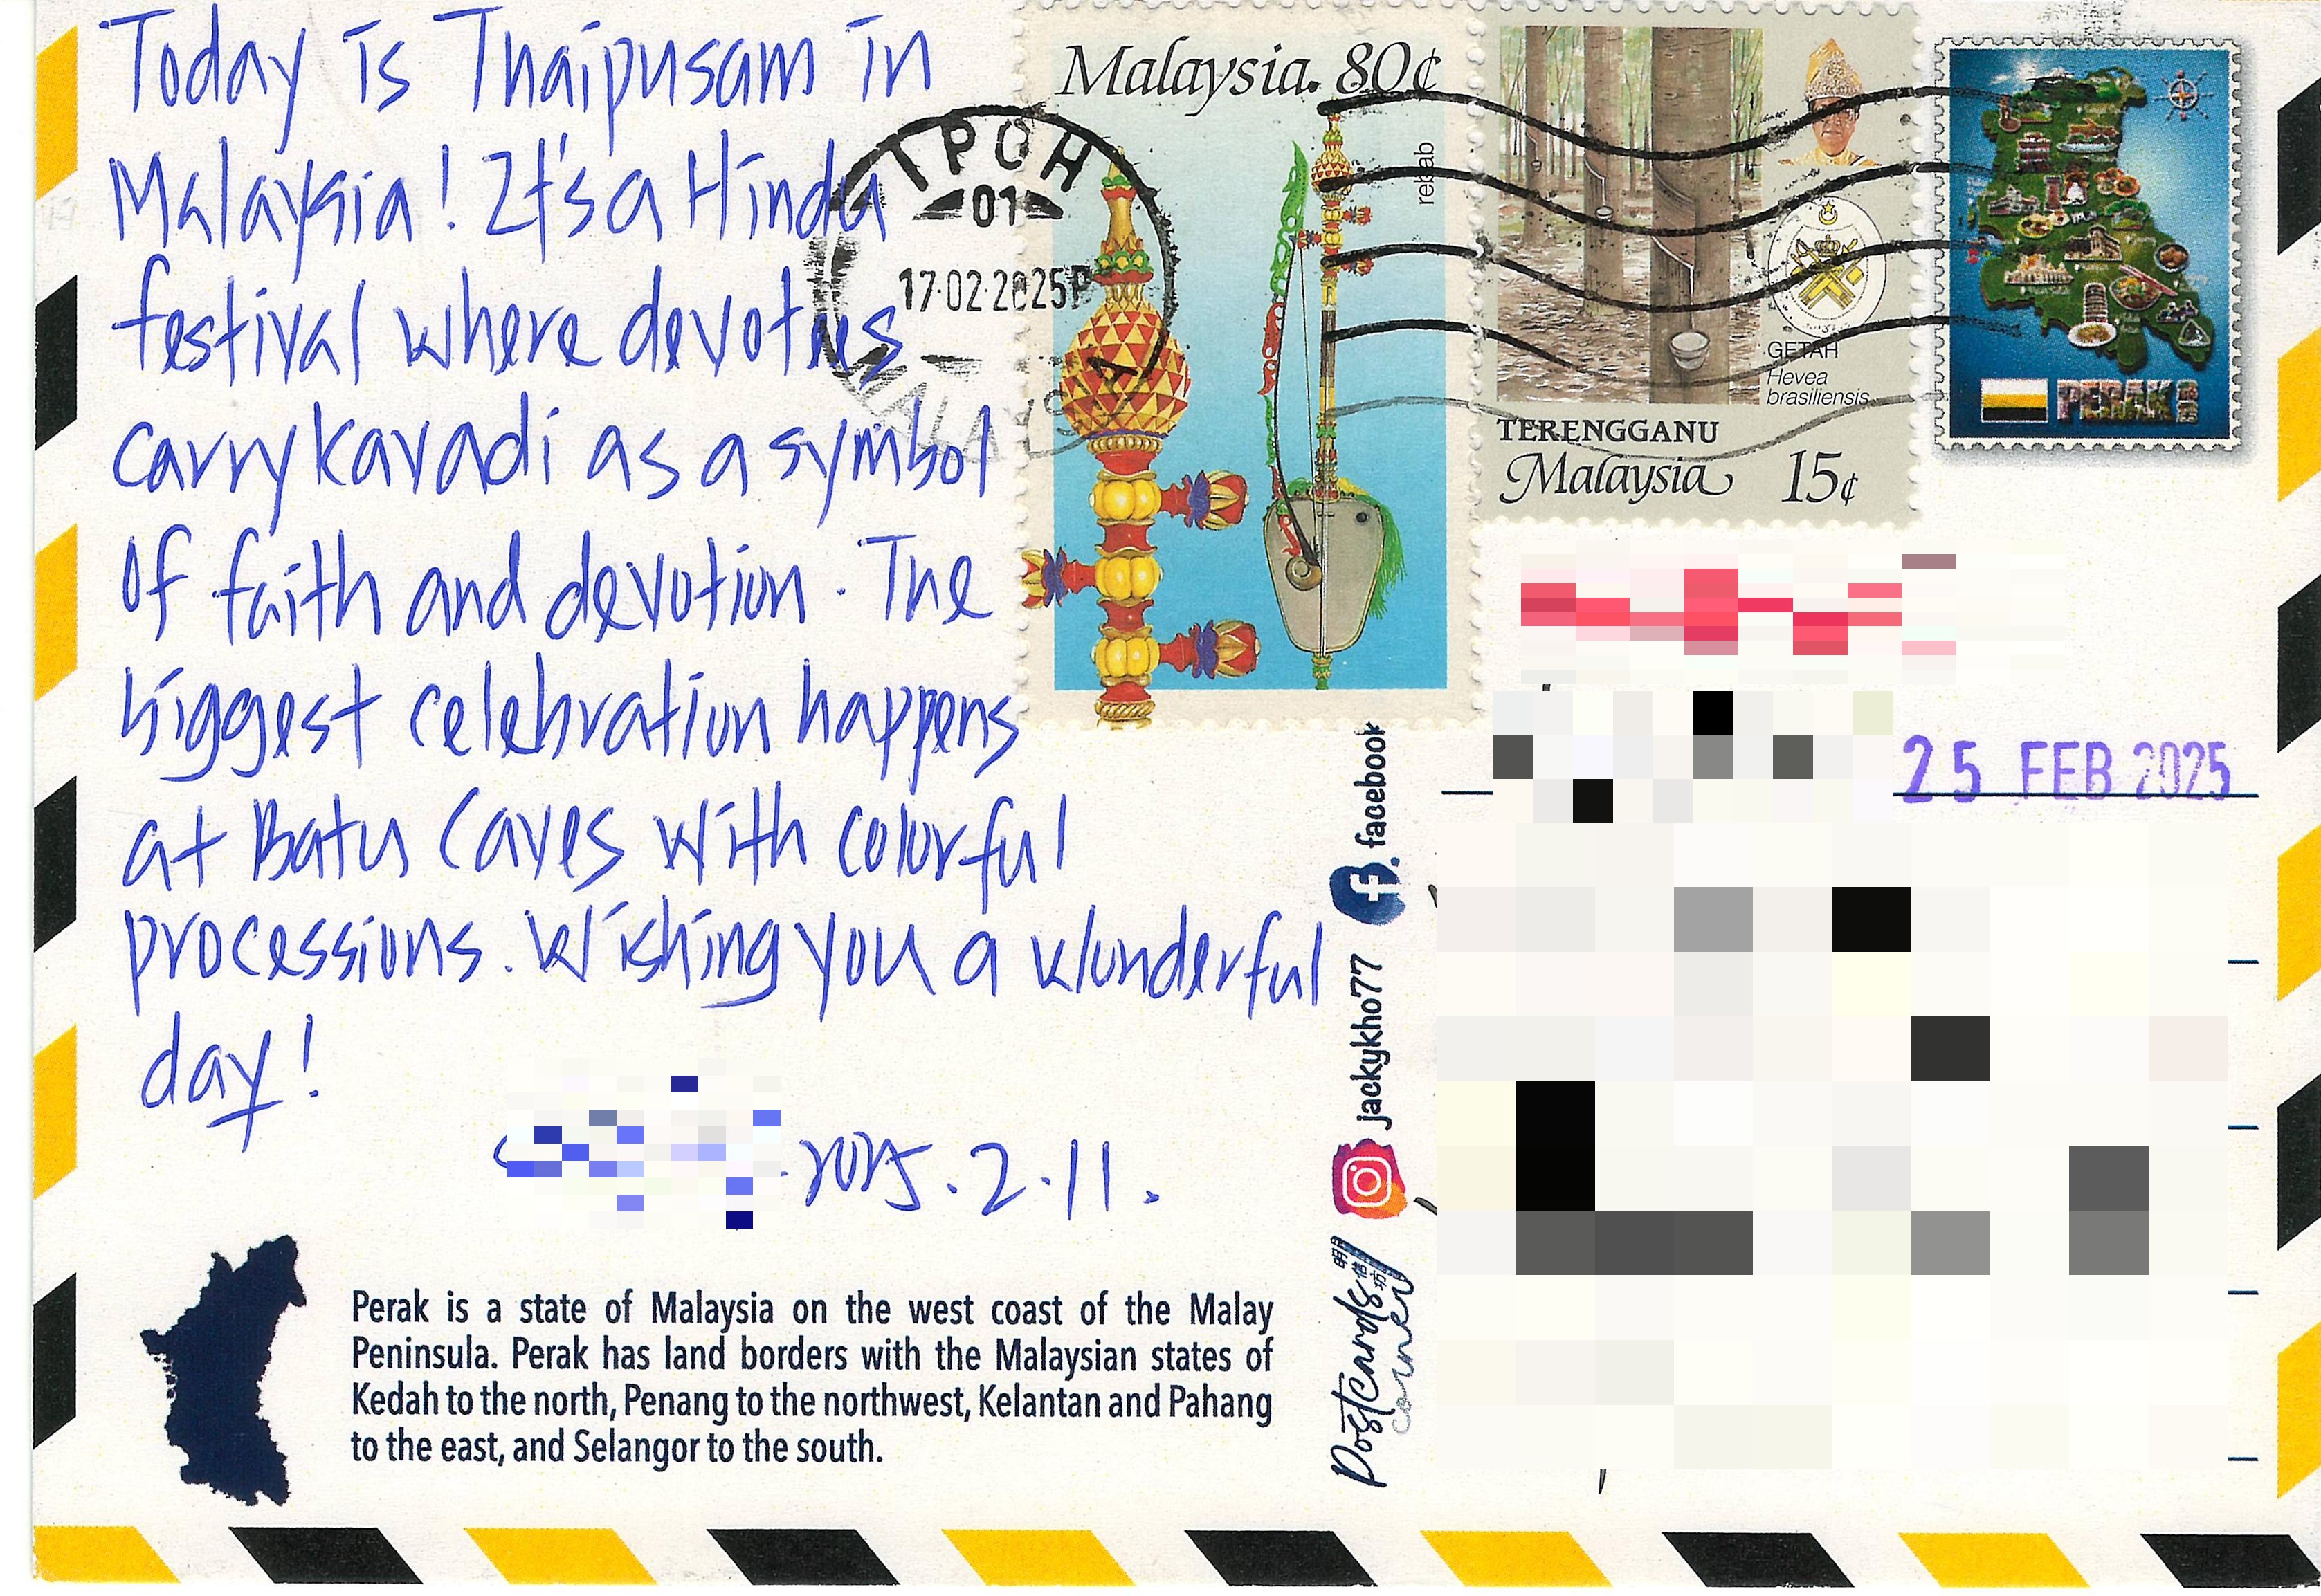 Today is Thaipusam in
Malaysia! It's a Hindu
festival where devotees
carry kavadi as a symbol
of faith and devotion. The
biggest celebration happens
at Batu Caves with colorful
processions. Wishing you a wonderful
day!
2025.2.11.
Perak is a state of Malaysia on the west coast of the Malay
Peninsula. Perak has land borders with the Malaysian states of
Kedah to the north, Penang to the northwest, Kelantan and Pahang
to the east, and Selangor to the south.
Malaysia 80¢
rebab
IPOH
01
17·02·2025P
MALAYSIA
GETAH
Hevea
brasiliensis
TERENGGANU
Malaysia 15¢
PERAK
25 FEB 2025
facebook
jackykho77
Postcards
明信坊
corner